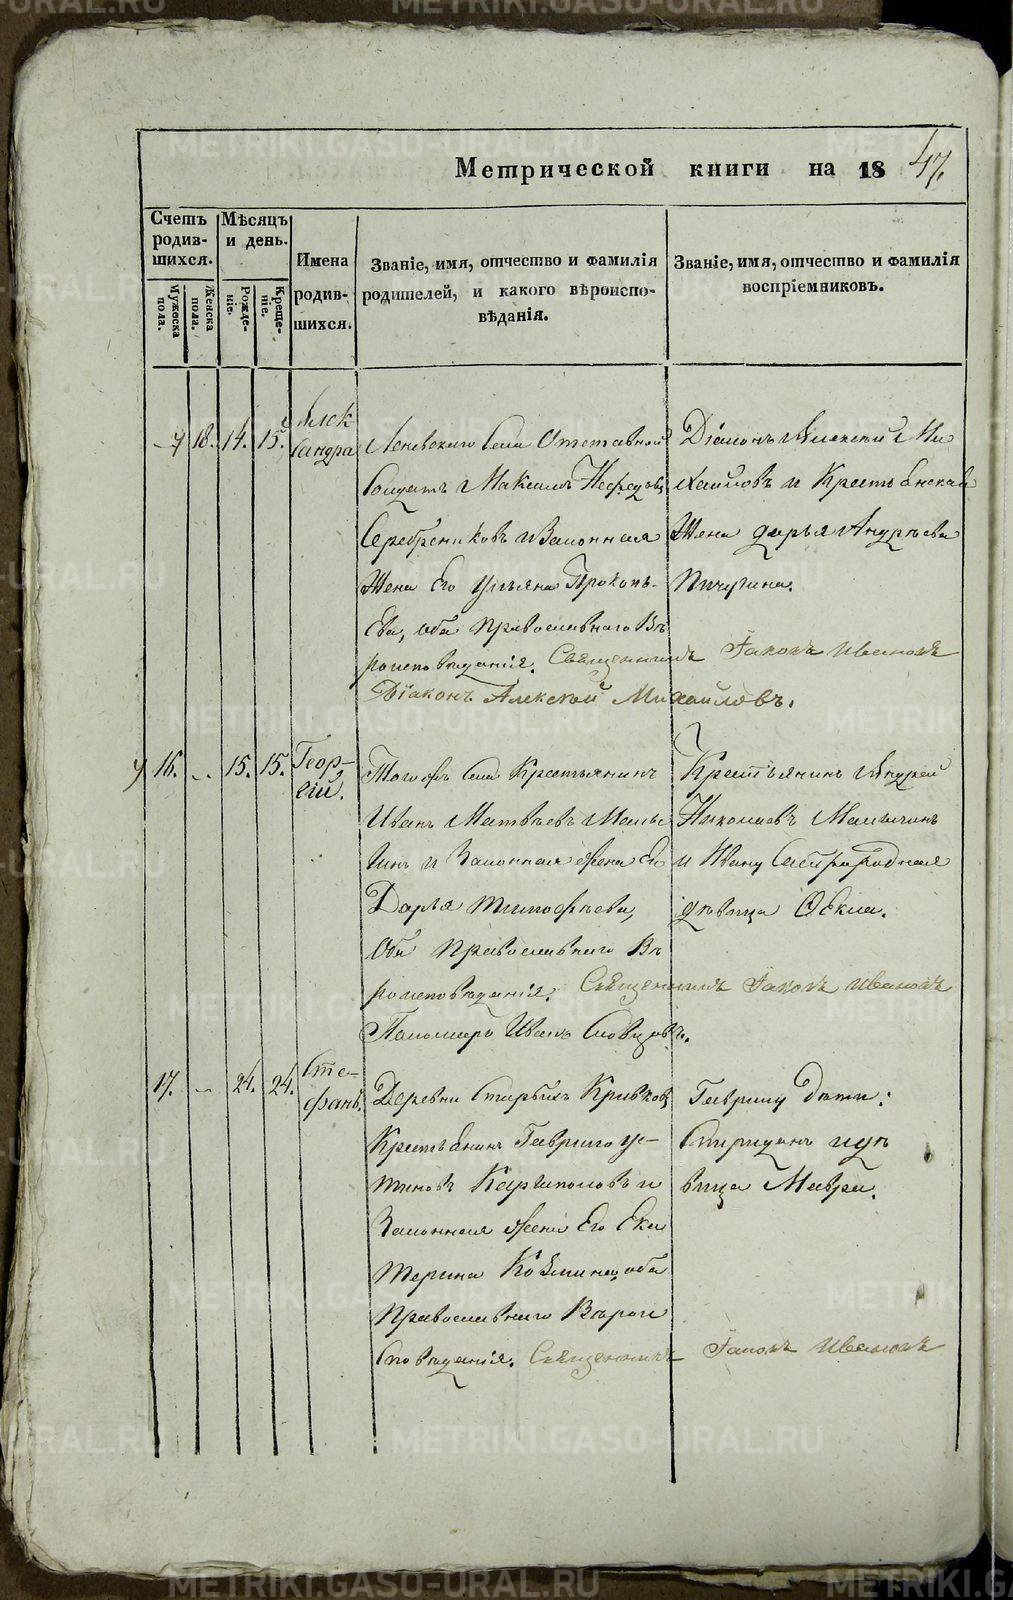 METRIKI.GASO-URAL.RU
Метрической книги на 18 47.
Счетъ родив-шихся.
Мѣсяцъ и день.
Имена родив-шихся.
Званіе, имя, отчество и фамилія родителей, и какого вѣроиспо-вѣданія.
Званіе, имя, отчество и фамилія воспріемниковъ.
Мужеска пола.
Женска пола.
Рожде-ніе.
Креще-ніе.
18. 14. 15.
Алек
сандра
Леневскаго Села Отставной
Солдатъ Максимъ Нефедовъ
Серебрениковъ и Законная
Жена Его Ульяна Прокопь-
ева, оба Православнаго Вѣ
роисповѣданія. Священникъ Іаковъ Ивановъ
Діаконъ Алексей Михайловъ.
Діаконъ Алексей Ми
хайловъ и Крестьянская
Жена Дарья Андреева
Пичугина.
16. 15. 15.
Геор-
гій.
Тогожъ Села Крестьянинъ
Иванъ Матвѣевъ Малы
и Законная Жена Его
Дарья Тимофѣева,
Оба Православнаго Вѣ
роисповѣданія. Священникъ Іаковъ Ивановъ
Пономарь Иванъ Словцовъ.
Крестьянинъ Андрей
Николаевъ Малыгинъ
и Ивану
дѣвица Фекла.
17. 24. 24.
Сте-
фанъ.
Деревни Старыхъ Кривковъ
Крестьянинъ Гаврило Ус-
тиновъ Каргаполовъ и
Законная Жена Его Ека
терина Козмина, оба
Православнаго Вѣрои
сповѣданія. Священникъ Іаковъ Ивановъ
Гаврилу дѣти:
Спиридонъ и дѣ
вица Мавра.